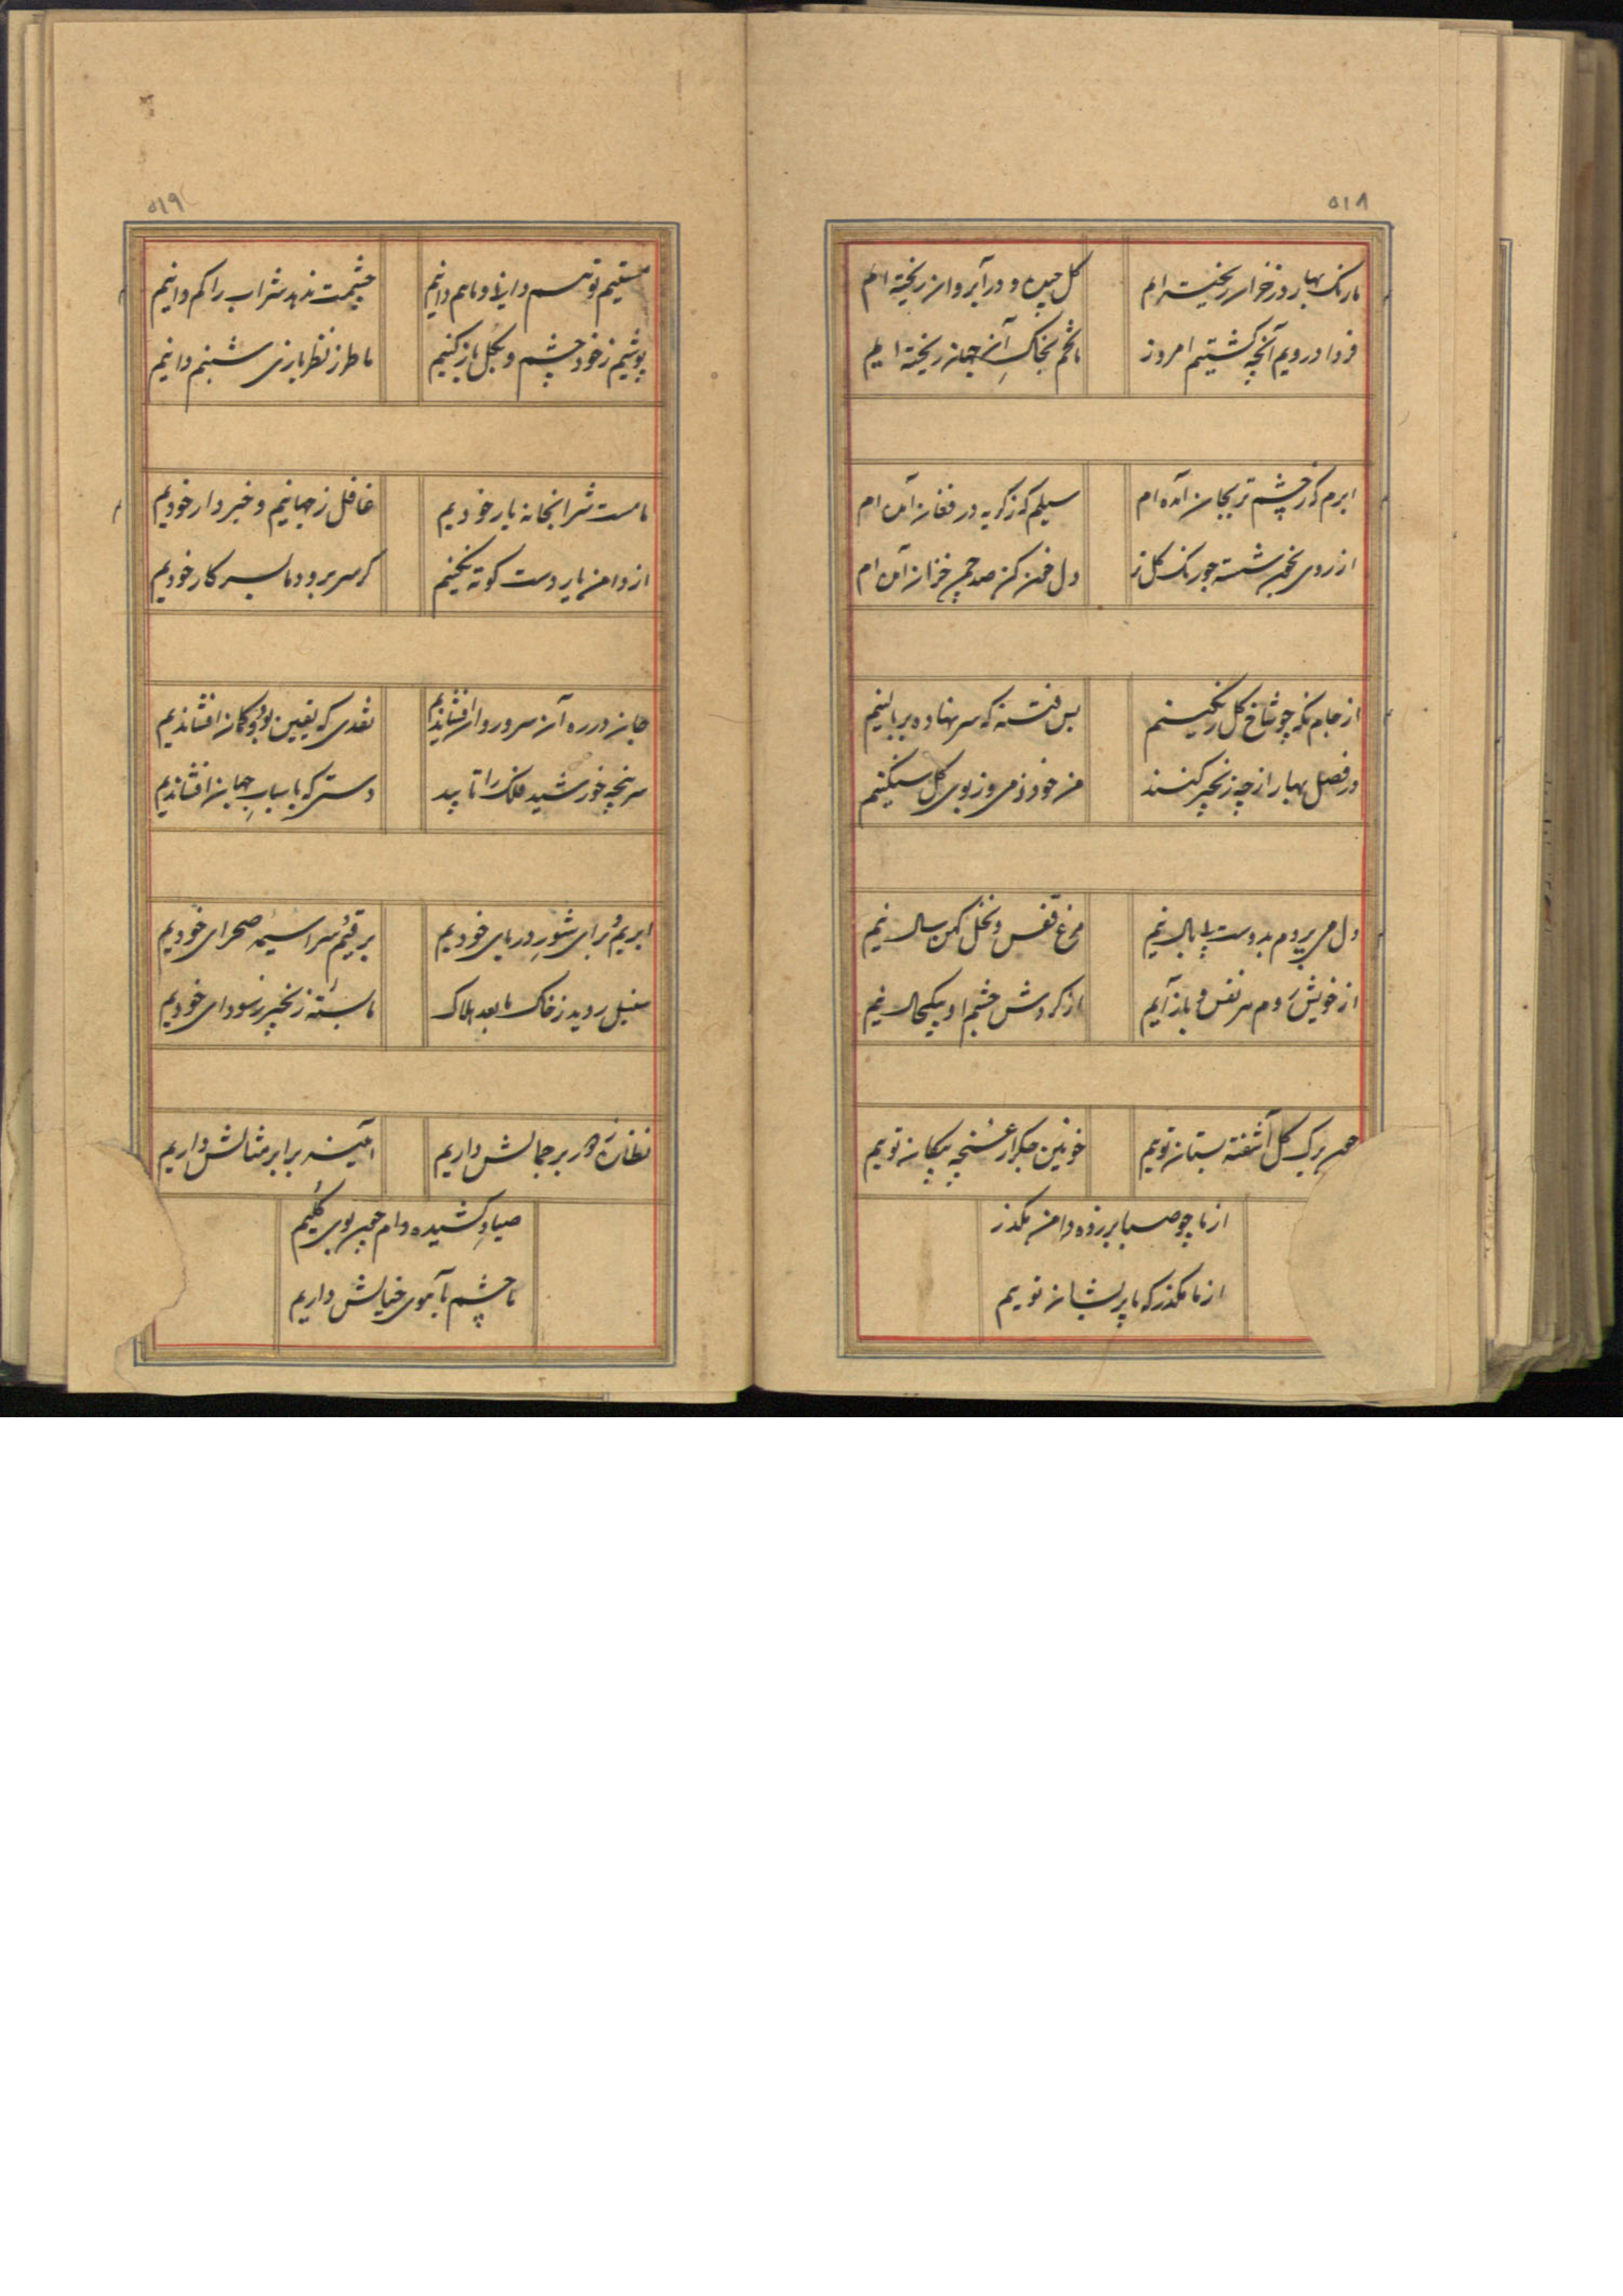 ۵۱۸
ما رنک بهار در خزان ریخته ایم
کل چیده و در آب روان ریخته ایم
فردا درویم آنچه کشتیم امروز
ما تخم بخاکِ آن جهان ریخته ایم
ابرم که ز چشم تر بجان آمده ام
سیلم که ز کریه در فغان آمده ام
از روی بخون شسته چو رنک کل تر
دل خون کن صد چمن خزان آمده ام
از جام نکه چو شاخ کل رنکینم
بس فتنه که سر نهاده بر بالینم
در فصل بهار از چه زنجیر کنند
من خود ز می و ز بوی کل سنکینم
دل می پردم بدوست با بال نیم
مرغ قفس و نخل کهن سال نیم
از خویش روم هر نفس و باز آیم
از کردش چشم او بیکحال نیم
همچون برک کل آشفته بستان توییم
خونین جکر از غنچه پیکان توییم
از ما چو صبا برزده دامن مکذر
از ما مکذر که ما پریشان توییم
۵۱۹
مستیم تو هم دانی و ما هم دانیم
چشمت ندهد شراب را کم دانیم
پوشیم ز خود چشم و بکل باز کنیم
ما طرز نظر بازی شبنم دانیم
ما مست شرابخانه یار خودیم
غافل ز جهانیم و خبردار خودیم
از دامن یار دست کوته نکنیم
کر سر برود ما بسر کار خودیم
جان در ره آن سرو روان افشاندیم
نقدی که یقین بود و کمان افشاندیم
سر پنجه خورشید فلک را تابید
دستی که باسبابِ جهان افشاندیم
ابریم و برای شورِ دریای خودیم
برقیم و سراسیمه صحرای خودیم
سنبل روید ز خاک ما بعد هلاک
ما بسته زنجیر ز سودای خودیم
نظاره بر جمالش داریم
آیینه برابر مثالش داریم
صیادِ کشیده دام چون بوی کلیم
ما چشم بآهوی خیالش داریم